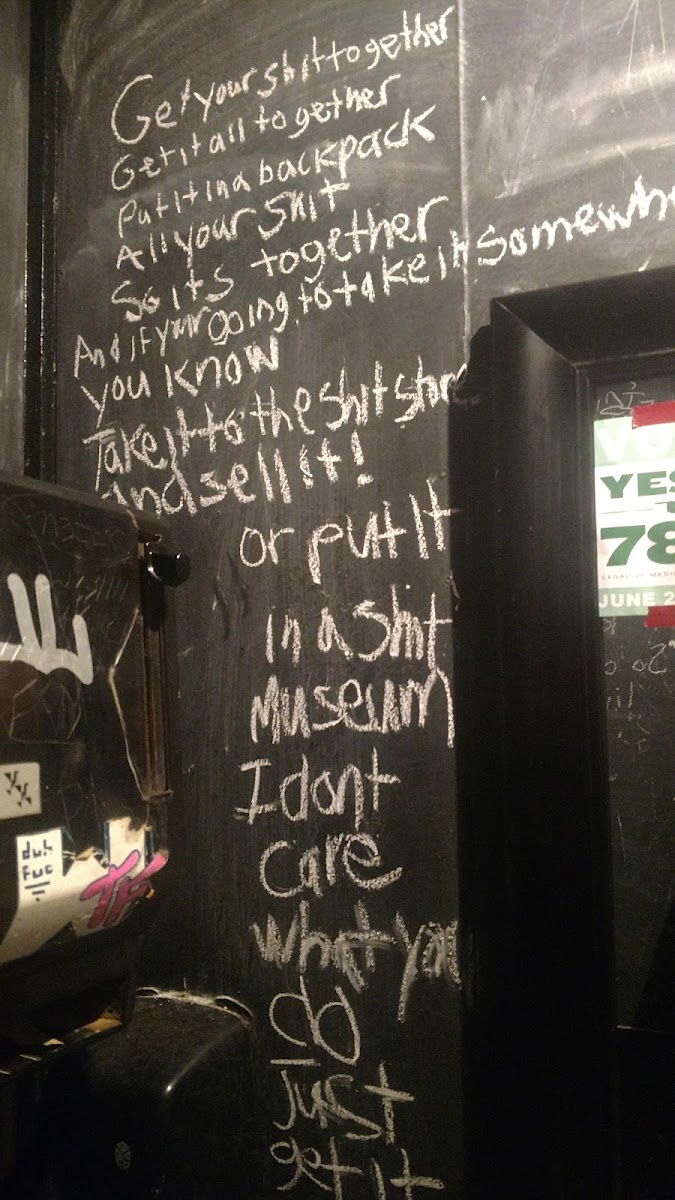 Get your shit together
Get it all together
Put it in a backpack
All your shit
So its together
And if your going to take it somewhe
you know
Take it to the shit store
And sell it!
or put It
in a shit
Museum
I dont
care
what you
do
Just
get It
YES
78
JUNE 2
TF